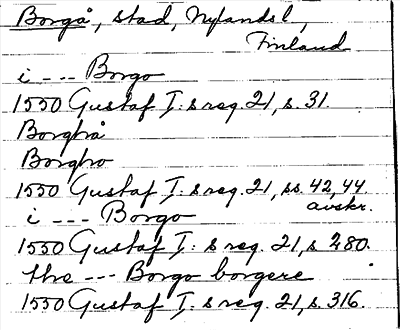 Borgå, stad, Nylandsl,
Finland
i --- Borgo
1550 Gustaf I:s reg. 21, s. 31.
Borghå
Borgho
1550 Gustaf I:s reg. 21, ss. 42, 44.
avskr.
i --- Borgo
1550 Gustaf I:s reg. 21, s 280.
the --- Borgo borgere
1550 Gustaf I:s reg. 21, s. 316.